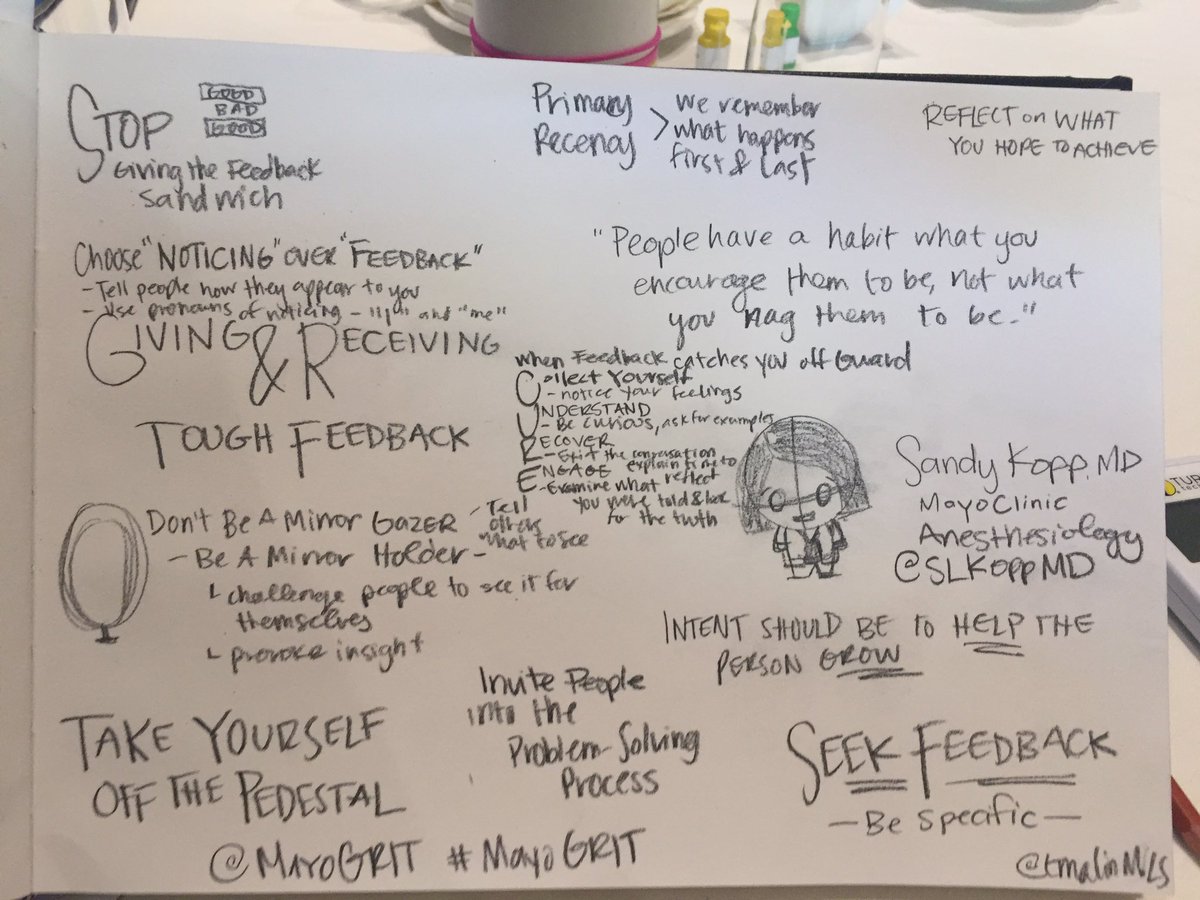 STOP
GOOD
BAD
GOOD
Giving the Feedback
sandwich
Primary
Recency
we remember
what happens
first & last
REFLECT on WHAT
YOU HOPE TO ACHIEVE
Choose "NOTICING" over "FEEDBACK"
- Tell people how they appear to you
- Use pronouns of noticing - "I" and "me"
"People have a habit what you
encourage them to be, not what
you nag them to be."
GIVING & RECEIVING
TOUGH FEEDBACK
When Feedback catches you off Guard
Collect Yourself
- notice your feelings
UNDERSTAND
- Be curious, ask for examples
RECOVER
- Exit the conversation
explain time to
reflect
ENGAGE
- Examine what
you were told & look
for the truth
Sandy Kopp, MD
Mayo Clinic
Anesthesiology
@SLKoppMD
Don't Be A Mirror Gazer
- Tell
others
what to see
- Be A Mirror Holder -
challenge people to see it for
themselves
provoke insight
INTENT SHOULD BE to HELP THE
PERSON GROW
Invite People
into the
Problem-Solving
Process
TAKE YOURSELF
OFF THE PEDESTAL
SEEK FEEDBACK
- Be Specific -
@MAYOGRIT #MayoGRIT
@tmalinMLS